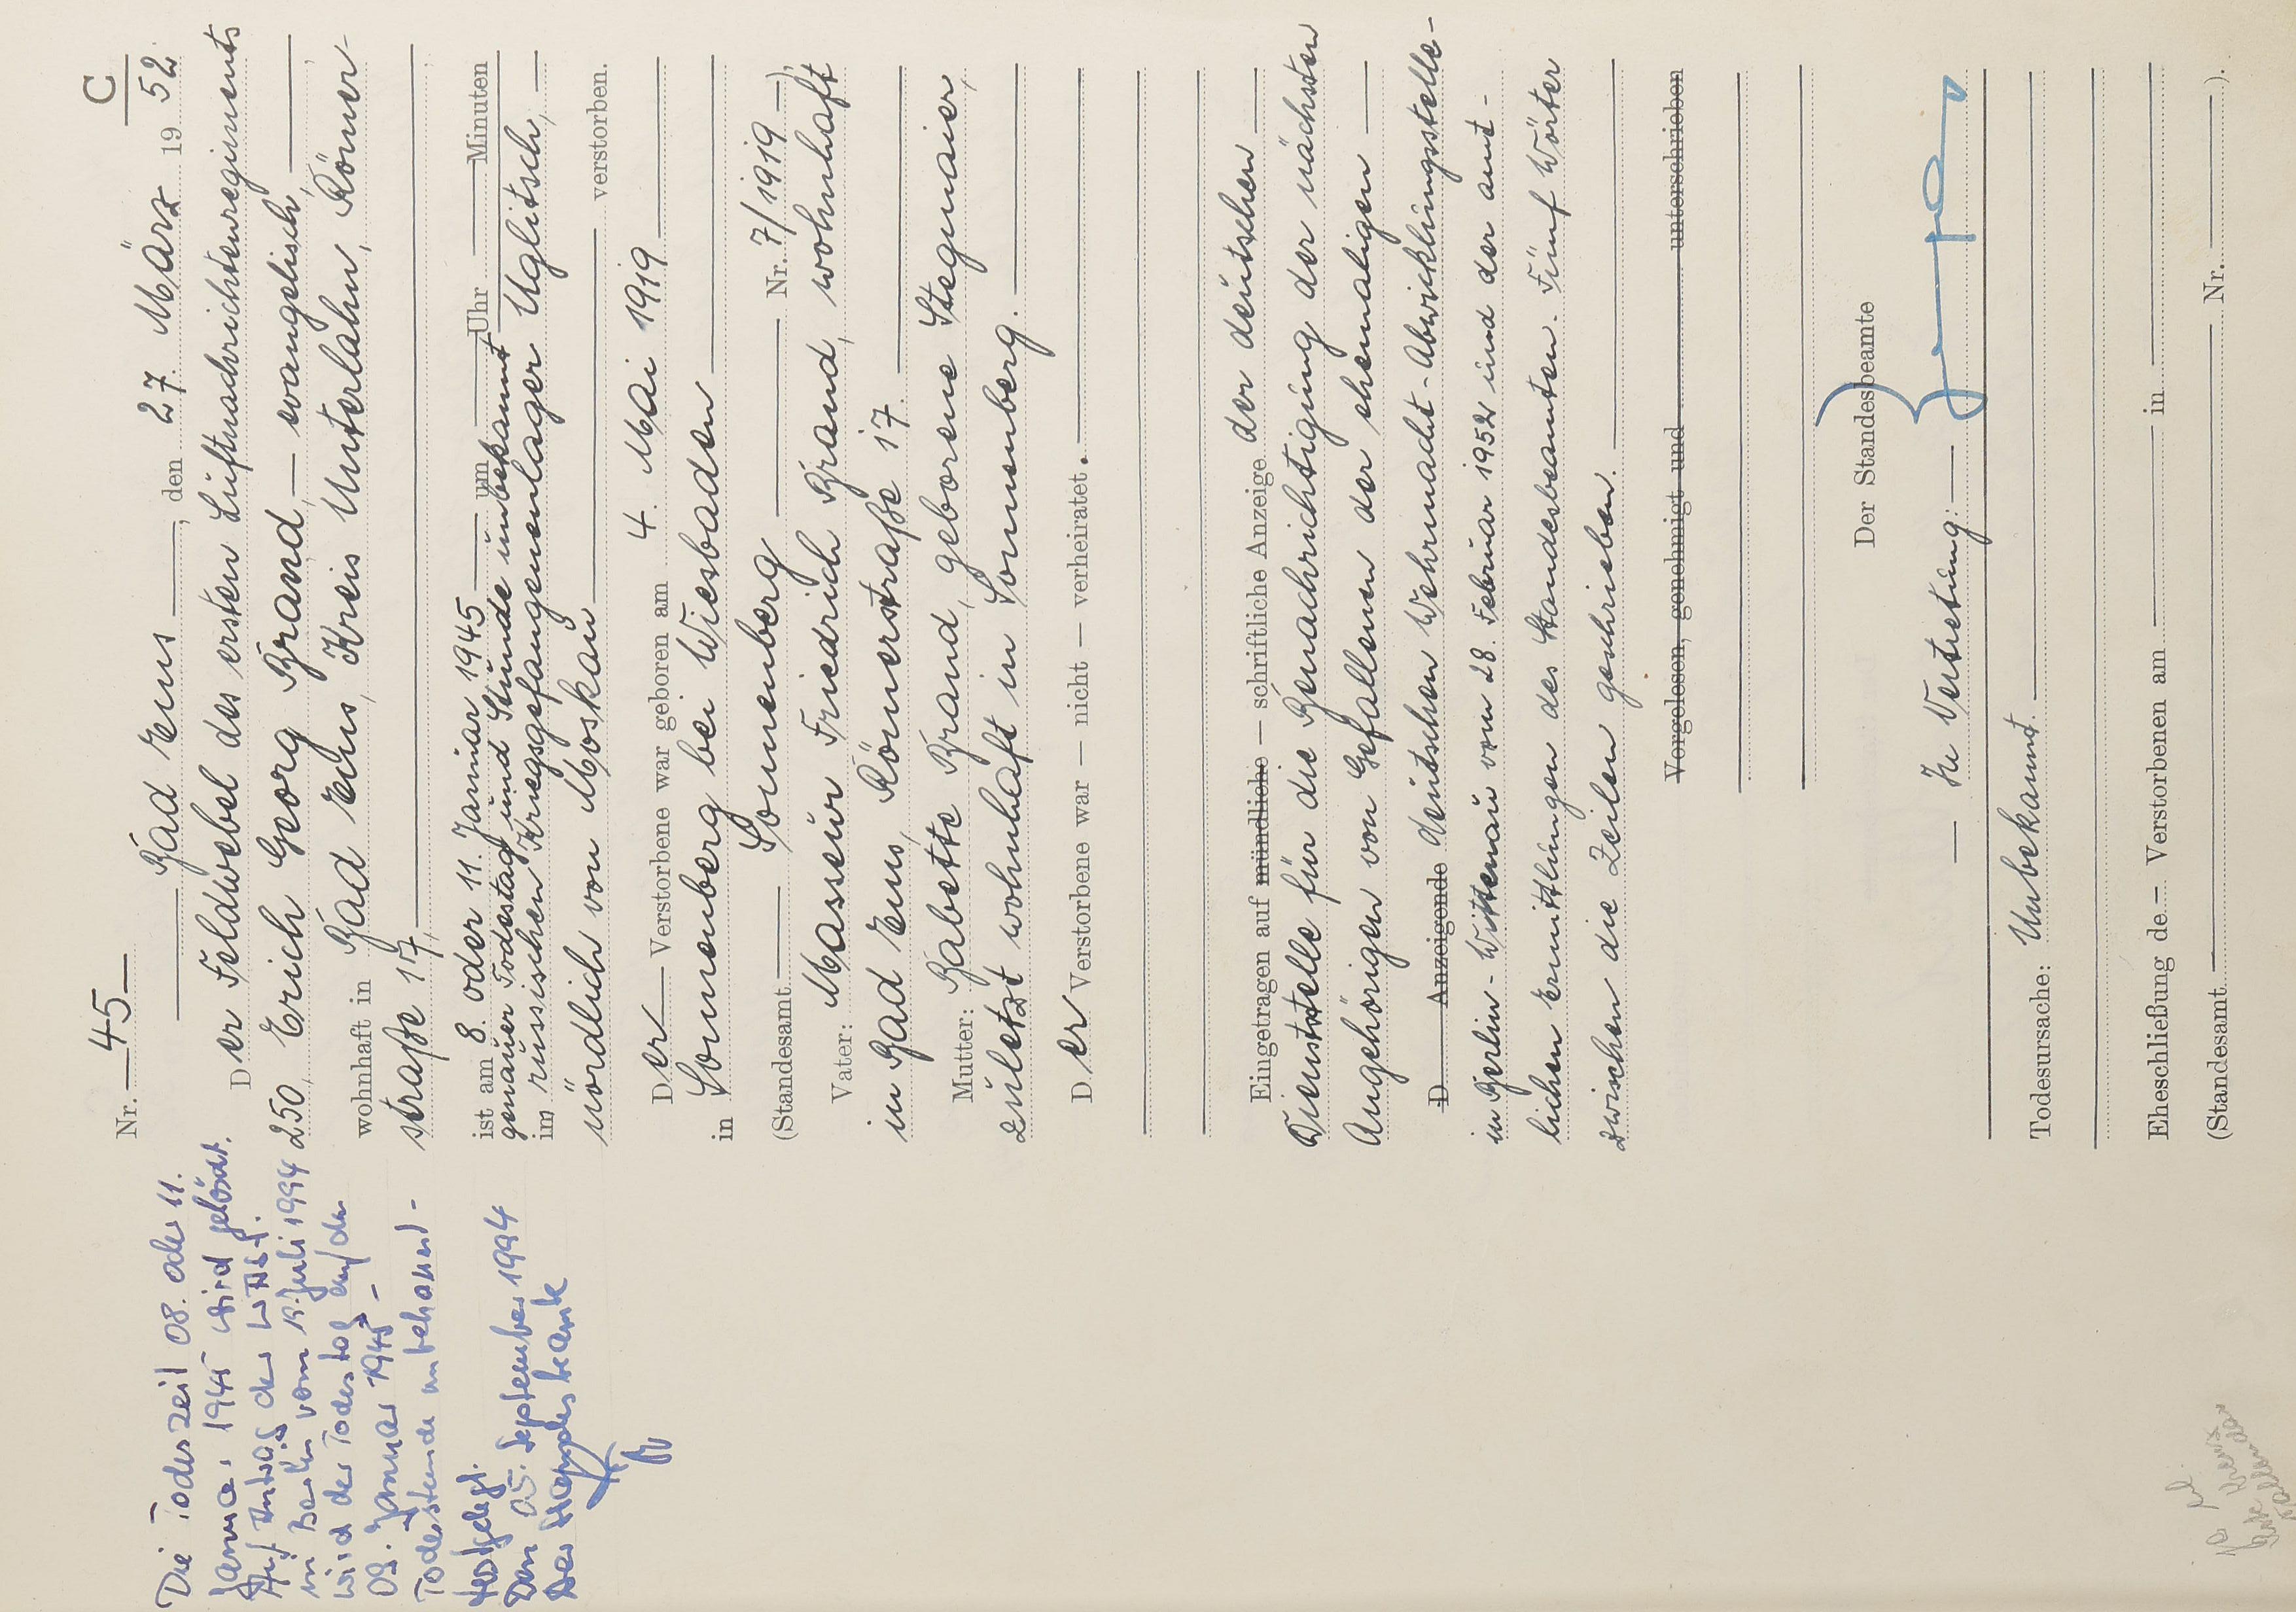 C
Nr. 45
Bad Ems, den 27. März 1952.
Der Feldwebel des ersten Luftnachrichtenregiments
250, Erich Georg Brand, — evangelisch,
wohnhaft in Bad Ems, Kreis Unterlahn, Römer-
straße 17,
ist am 8. oder 11. Januar 1945 um Uhr Minuten
genauer Todestag und Stunde unbekannt
im russischen Kriegsgefangenenlager Uglitsch,
nördlich von Moskau verstorben.
Der Verstorbene war geboren am 4. Mai 1919
in Sonnenberg bei Wiesbaden
(Standesamt Sonnenberg Nr. 7/1919 —).
Vater: Masseur Friedrich Brand, wohnhaft
in Bad Ems, Römerstraße 17.
Mutter: Babette Brand, geborene Stegmaier,
zuletzt wohnhaft in Sonnenberg.
Der Verstorbene war — nicht — verheiratet.
Eingetragen auf mündliche — schriftliche Anzeige der deutschen
Dienststelle für die Benachrichtigung der nächsten
Angehörigen von Gefallenen der ehemaligen
D Anzeigende deutschen Wehrmacht-Abwicklungsstelle-
in Berlin-Wittenau vom 28. Februar 1952 und der amt-
lichen Ermittlungen des Standesbeamten. Fünf Wörter
zwischen die Zeilen geschrieben.
Vorgelesen, genehmigt und unterschrieben
Der Standesbeamte
— In Vertretung: —
Todesursache: Unbekannt.
Eheschließung de — Verstorbenen am in
(Standesamt Nr. ).
Die Todeszeit 08. oder 11.
Januar 1945 wird gelöscht.
Auf Antrag der WASt.
in Berlin vom 19. Juli 1994
wird der Todestag auf den
08. Januar 1945 -
Todesstunde unbekannt -
festgelegt.
Den 05. September 1994
Der Standesbeamte